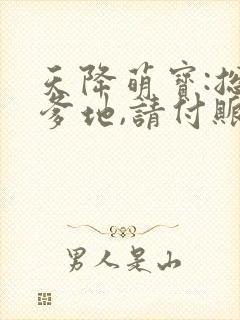 天降萌寶:
爹地,請付
男人是山